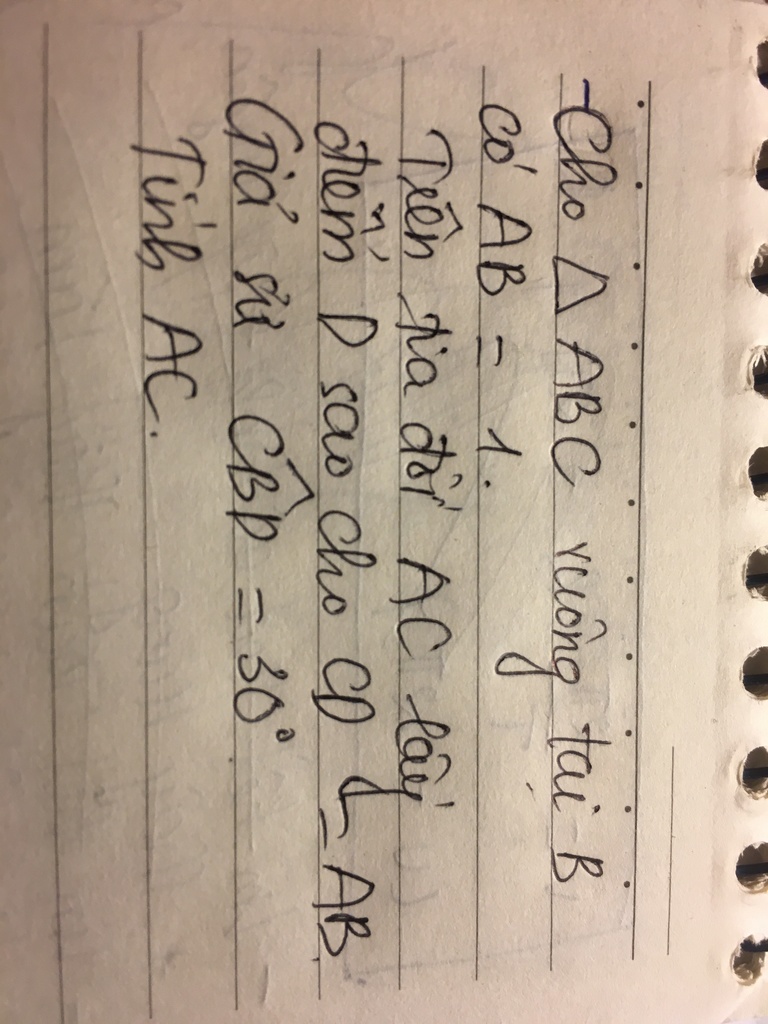 - Cho △ ABC vuông tại B
có AB = 1.
Trên tia đối AC lấy
điểm D sao cho CD = AB
Giả sử CB̂D = 30°
Tính AC.